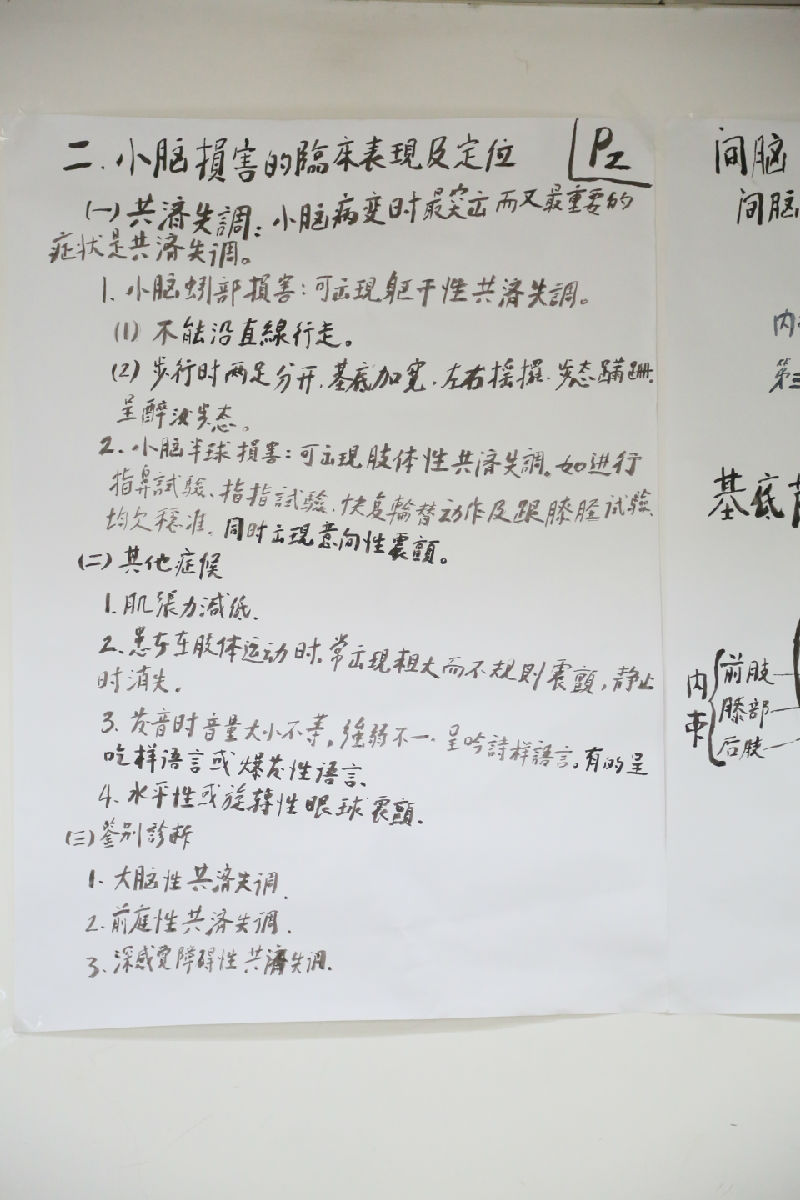 二.小脑損害的臨床表現及定位
P2
(一)共濟失調:小脑病变时最突出而又最重要的
症状是共濟失调。
1.小脑蚓部損害:可出現躯干性共濟失調。
(1)不能沿直線行走。
(2)步行时两足分开.基底加宽.左右摇擺.步态蹒跚.
呈醉汉步态。
2.小脑半球損害:可出現肢体性共濟失調。如进行
指鼻試驗、指指試驗.快复輪替动作及跟膝胫试验.
均欠穩准.同时出現意向性震顫。
(二)其他症候
1.肌張力減低.
2.患者在肢体运动时,常出現粗大而不規則震顫,静止
时消失.
3.发音时音量大小不等,強弱不一.呈吟詩样語言。有的呈
吃样语言或爆发性语言.
4.水平性或旋轉性眼球震顫.
(三)鉴别診断
1.大脑性共濟失调.
2.前庭性共濟失调.
3.深感觉障碍性共濟失调.
间脑
间脑
内
第三
基底
内束
前肢
膝部
后肢